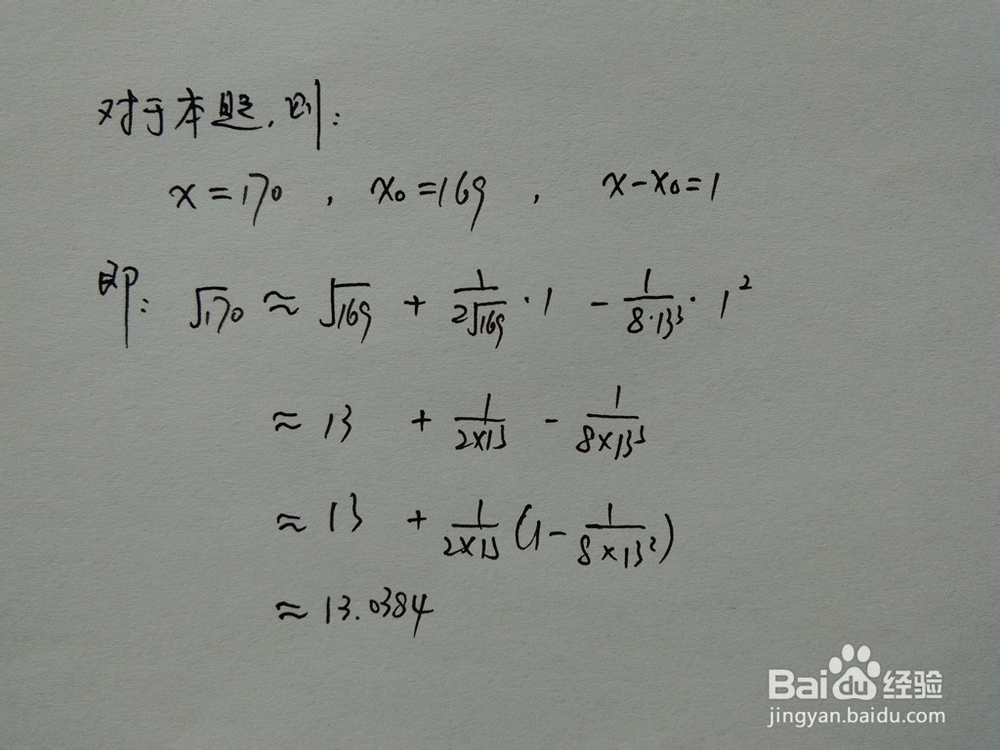 对于本题,则:
x=170 , x₀=169 , x-x₀=1
即: √170 ≈ √169 + 1/(2√169) · 1 - 1/(8·13³) · 1²
≈ 13 + 1/(2×13) - 1/(8×13³)
≈ 13 + 1/(2×13) (1 - 1/(8×13²))
≈ 13.0384
Baidu经验
jingyan.baidu.com